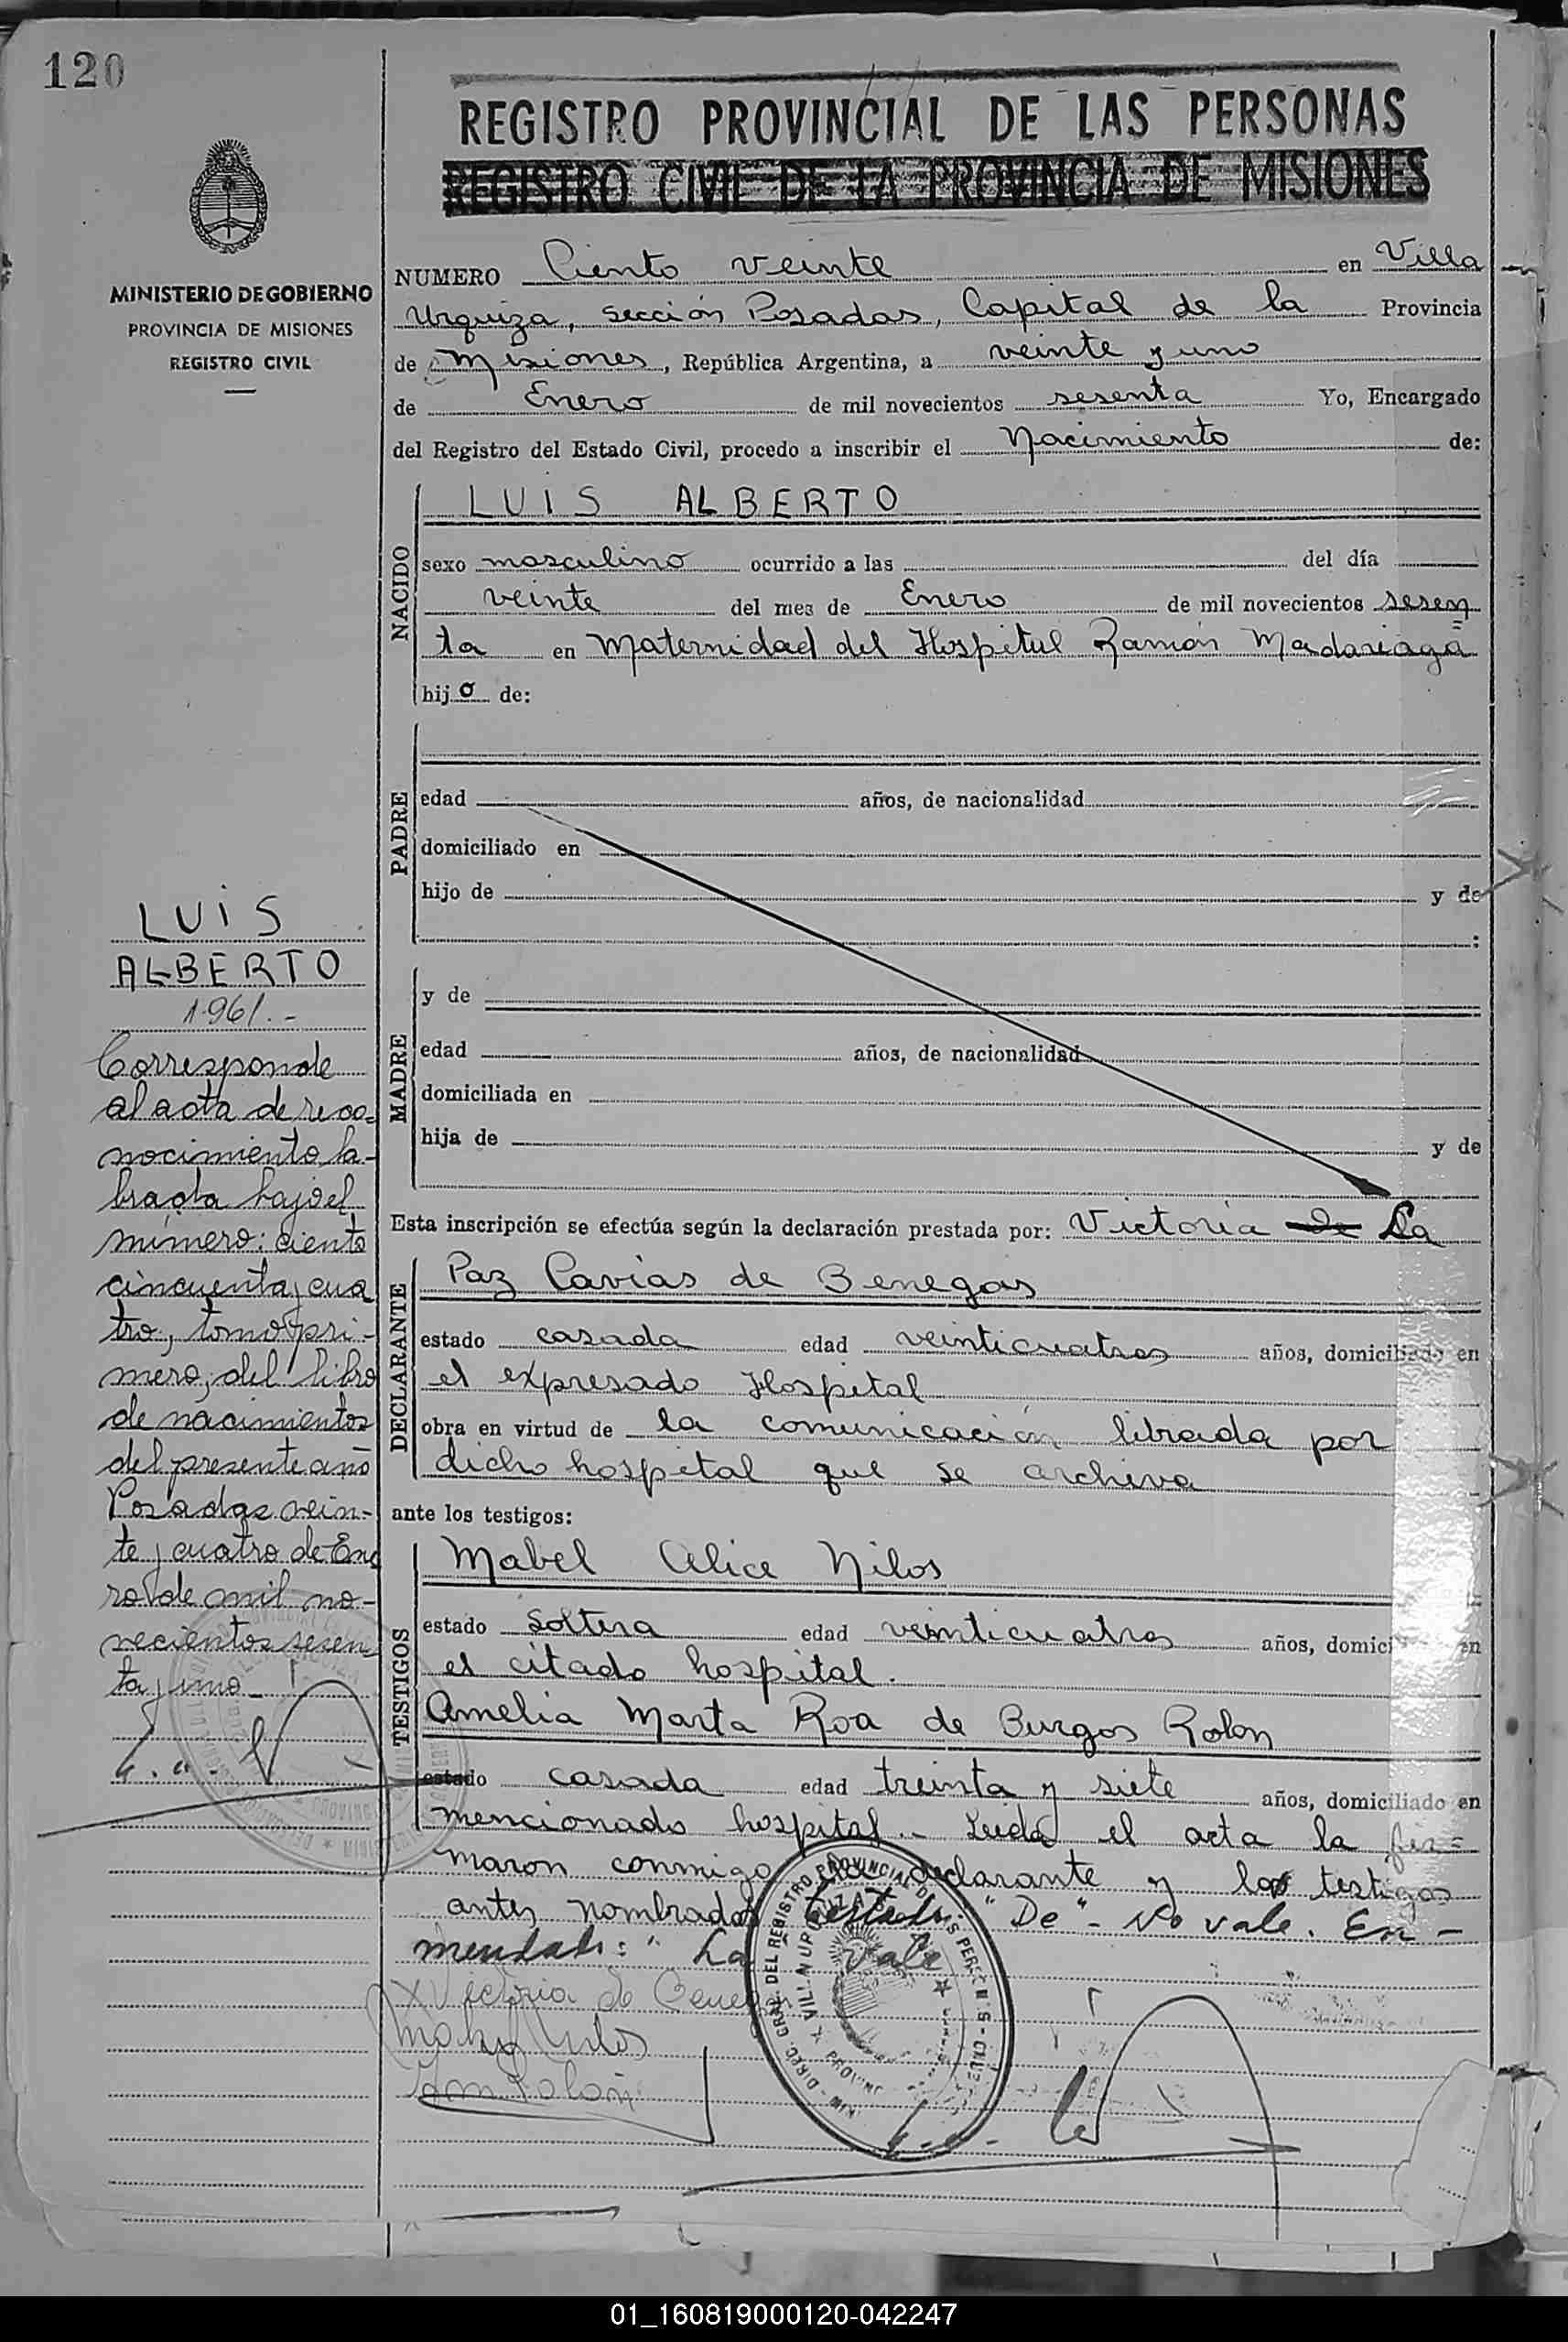 120
REGISTRO PROVINCIAL DE LAS PERSONAS
REGISTRO CIVIL DE LA PROVINCIA DE MISIONES
MINISTERIO DE GOBIERNO
PROVINCIA DE MISIONES
REGISTRO CIVIL
NUMERO Ciento veinte en Villa
Urquiza, sección Posadas, Capital de la Provincia
de Misiones, República Argentina, a veinte y uno
de Enero de mil novecientos sesenta Yo, Encargado
del Registro del Estado Civil, procedo a inscribir el Nacimiento de:
NACIDO
LUIS ALBERTO
sexo masculino ocurrido a las del día
veinte del mes de Enero de mil novecientos sesen
ta en Maternidad del Hospital Ramón Madariaga
hijo de:
PADRE
edad años, de nacionalidad
domiciliado en
hijo de y de
:
MADRE
y de
edad años, de nacionalidad
domiciliada en
hija de y de
Esta inscripción se efectúa según la declaración prestada por: Victoria de La
DECLARANTE
Paz Cavias de Benegas
estado casada edad veinticuatros años, domiciliado en
el expresado Hospital
obra en virtud de la comunicación librada por
dicho hospital que se archiva
ante los testigos:
TESTIGOS
Mabel Alice Nilos
estado Soltera edad veinticuatros años, domici en
el citado hospital.
Amelia Marta Roa de Burgos Rolon
estado casada edad treinta y siete años, domiciliado en
mencionado hospital.- Leida el acta la fir=
maron conmigo declarante y los testigos
antes nombrados testado: "De"- No vale. En-
mendado: "La vale
Victoria de Benegas
Mabel Nilos
Rolon
LUIS
ALBERTO
1961.-
Corresponde
al acta de reco-
nocimiento la-
brada bajo el
número: ciento
cincuenta y cua
tro, tomo pri-
mero, del libro
de nacimientos
del presente año
Posadas vein-
te y cuatro de Ene
ro de mil no-
vecientos sesen
ta y uno-
01_160819000120-042247